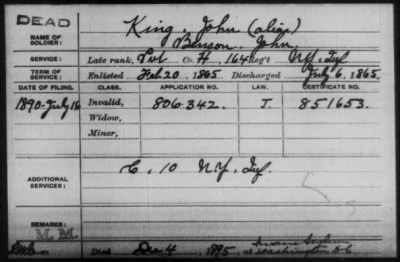 DEAD
NAME OF SOLDIER:
King, John (alias)
Benson, John
SERVICE:
Late rank, Pvt Co. H, 164 Reg't N.Y. Inf
TERM OF SERVICE:
Enlisted Feb. 20, 1865 Discharged July 6, 1865.
DATE OF FILING. CLASS. APPLICATION NO. LAW. CERTIFICATE NO.
1890-July 16 Invalid, 806.342. I. 851653.
Widow,
Minor,
ADDITIONAL SERVICES:
C. 10 N.Y. Inf.
REMARKS:
M. M.
Died Dec 4, 1895, at Insane Asylum
Washington D.C.